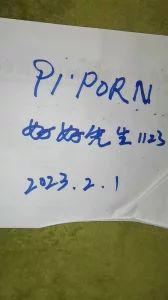 PI·PORN
好好先生1123
2023.2.1